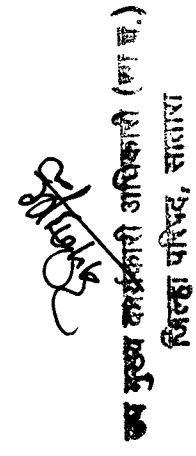 उप मुख्य कार्यकारी अधिकारी (ग्रा.पं.)
जिल्हा परिषद, सातारा